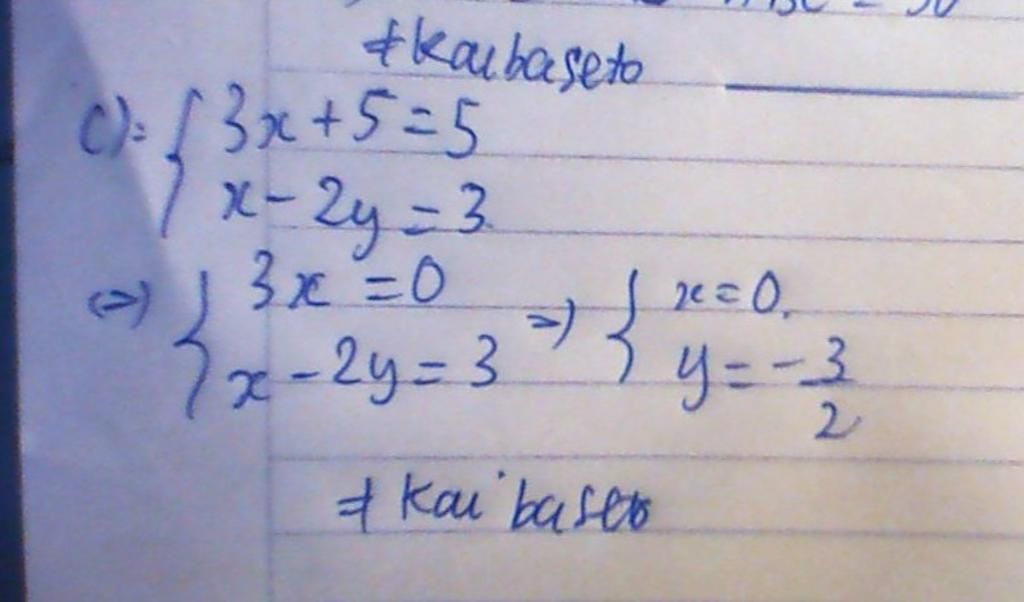 ≠ Kaibaseto
c): { 3x + 5 = 5
x - 2y = 3
(=) { 3x = 0 =) { x = 0.
x - 2y = 3 y = -3/2
≠ Kaibaseto